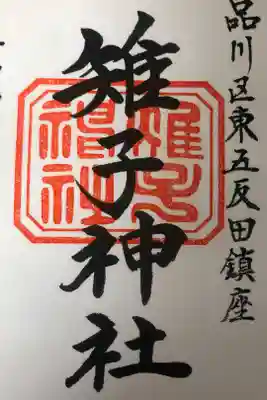 品川区東五反田鎮座
雉子神社
雉子
神社